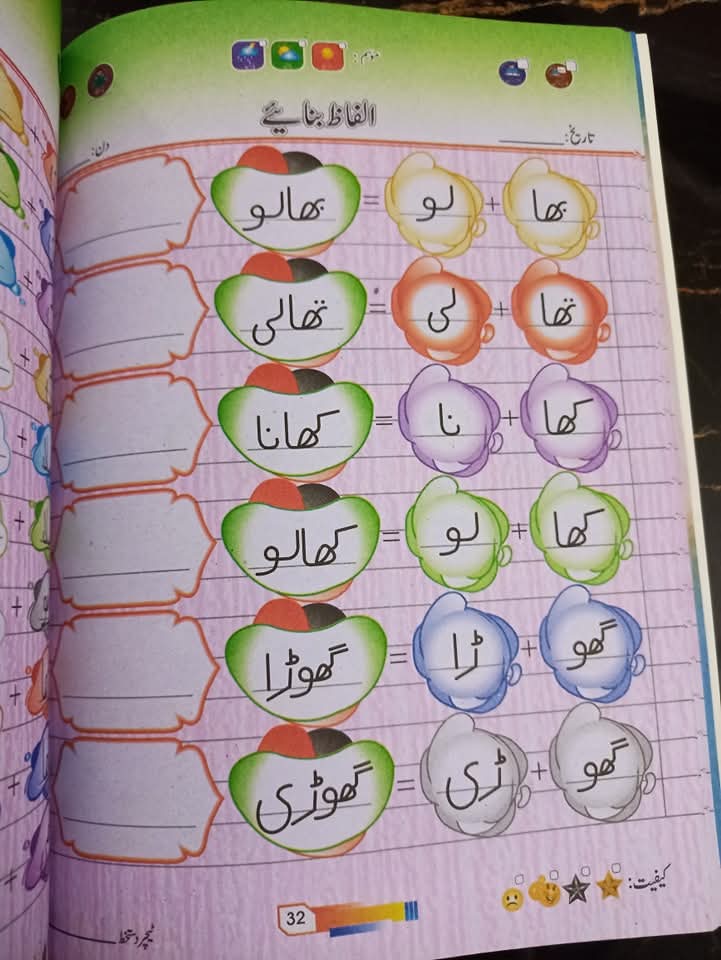 موسم:
الفاظ بنایئے
تاریخ: دن:
بھا + لو = بھالو
تھا + لی = تھالی
کھا + نا = کھانا
کھا + لو = کھالو
گھو + ڑا = گھوڑا
گھو + ڑی = گھوڑی
کیفیت:
32
ٹیچر دستخط